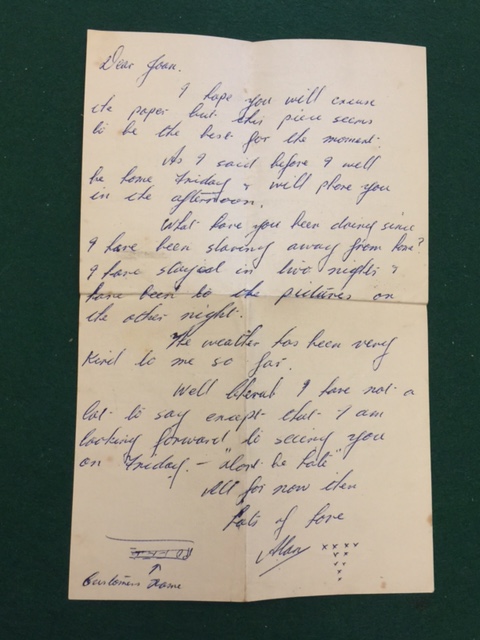 Dear Joan,
I hope you will excuse
the paper but this piece seems
to be the best for the moment.
As I said before I will
be home Friday & will phone you
in the afternoon.
What have you been doing since
I have been slaving away from home?
I have stayed in two nights &
have been to the pictures on
the other night.
The weather has been very
kind to me so far.
Well I have not a
lot to say except that I am
looking forward to seeing you
on Friday. - "dont be late"
All for now then
Lots of love
Alan x x x x
x x
x
x
Customers name